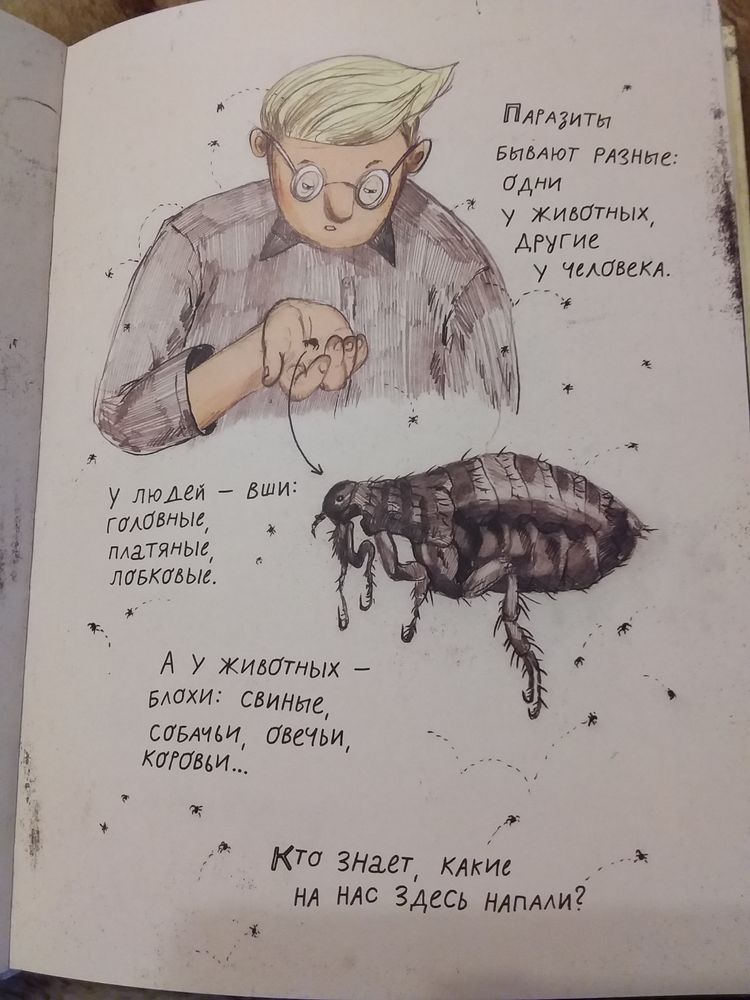 Паразиты
бывают разные:
одни
у животных,
другие
у человека.
У людей – вши:
головные,
платяные,
лобковые.
А у животных –
блохи: свиные,
собачьи, овечьи,
коровьи...
Кто знает, какие
на нас здесь напали?